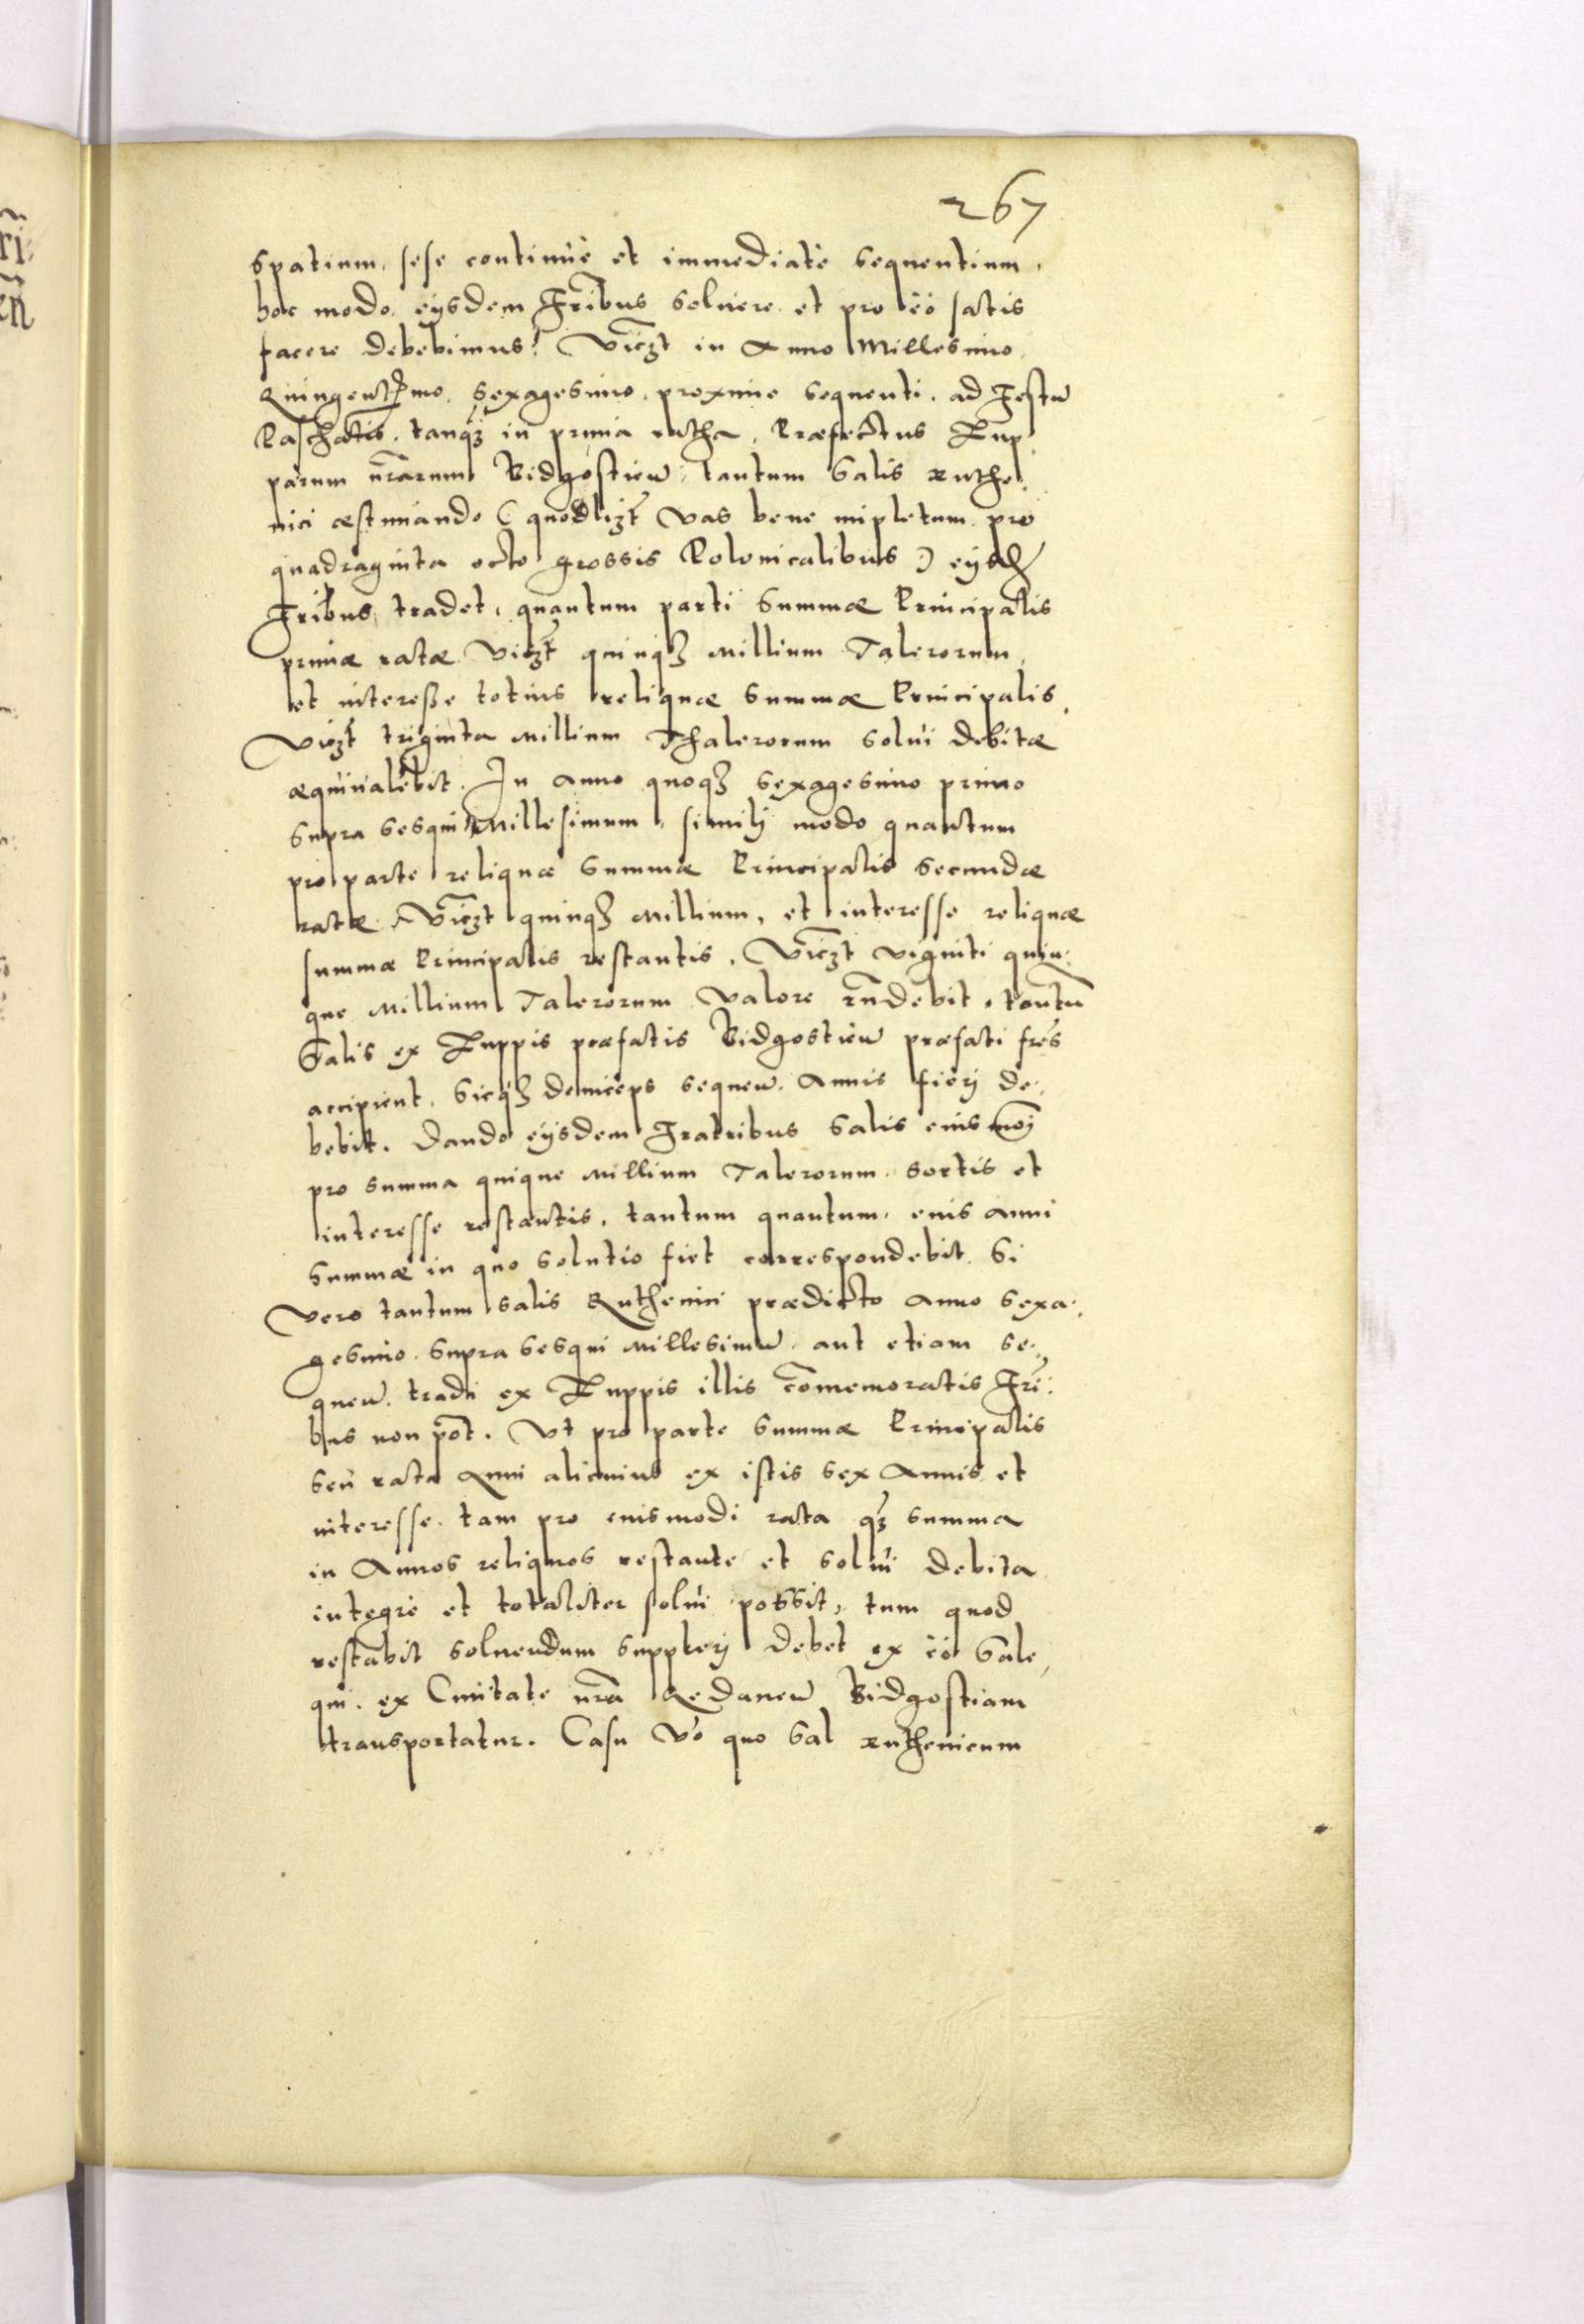 267
spatium, sese continuè et immediatè sequentium,
hoc modo eysdem Fribus soluere et pro eo satis
facere debebimus: Viczt in Anno Millesimo
Quingentmo. sexagesimo, proxime sequenti, ad Festu
Paschatis, tanqz in prima ratha, Præfectus Zup
parum nrarum Bidgostien, tantum Salis ruthe
nici æstimando (quodlizt vas bene impletum pro
quadraginta octo grossis Polonicalibus) eysd
Fribus tradet, quantum parti summæ Principalis
primæ ratæ viczt quinqz Millium Talerorum
et interesse totius reliquæ summæ Principalis,
Viczt triginta Millium Thalerorum solui debitæ
æquiualebit. In anno quoqz sexagesimo primo
supra sesqui Millesimum, simili modo quantum
pro parte reliquæ summæ Principalis secundæ
ratæ, Viczt quinqz Millium, et interesse reliquæ
summæ Principalis restantis, Viczt viginti quin-
que Millium Talerorum valore rndebit, tantu
Salis ex Zuppis præfatis Bidgostien præfati fres
accipient, sicqz deinceps sequen. Annis fierj de-
bebit. Dando eysdem Fratribus Salis eiusmoj
pro summa quique Millium Talerorum sortis et
interesse restantis, tantum quantum eius anni
summæ in quo solutio fiet correspondebit. Si
vero tantum salis Ruthenici prædicto Anno sexa-
gesimo supra sesqui Millesimu, aut etiam se-
quen. tradi ex Zuppis illis comemoratis Fri-
bus non pot. Vt pro parte summæ Principalis
seu rata Anni alicuius ex istis sex Annis et
interesse tam pro eiusmodi rata qz summa
in Annos reliquos restante et solui debita
integrè et totaliter solui possit, tum quod
restabit soluendum supplerj debet ex eo Sale,
qui ex Ciuitate nra Gedanen Bidgostiam
transportatur. Casu vo quo sal ruthenicum